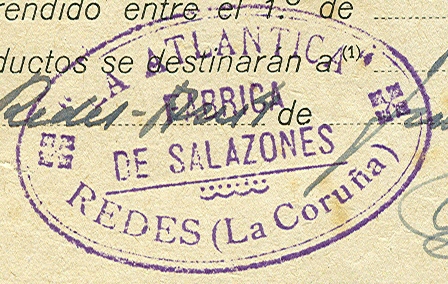 rendido entre el 1.º de
ductos se destinarán a (1)
Redes-
de
LA ATLANTICA
FABRICA
DE SALAZONES
REDES (La Coruña)